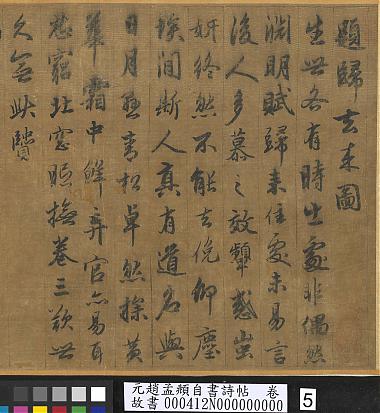 題歸去來圖
生世各有時出處非偶然
淵明賦歸來佳處未易言
後人多慕之效顰惑蚩
妍終然不能去俛仰塵
埃間斯人真有道名與
日月懸青松卓然操黃
華霜中鮮弃官亦易耳
忍窮北窓眠撫卷三歎世
久無此賢
元趙孟頫自書詩帖 卷
故書 000412N000000000
5